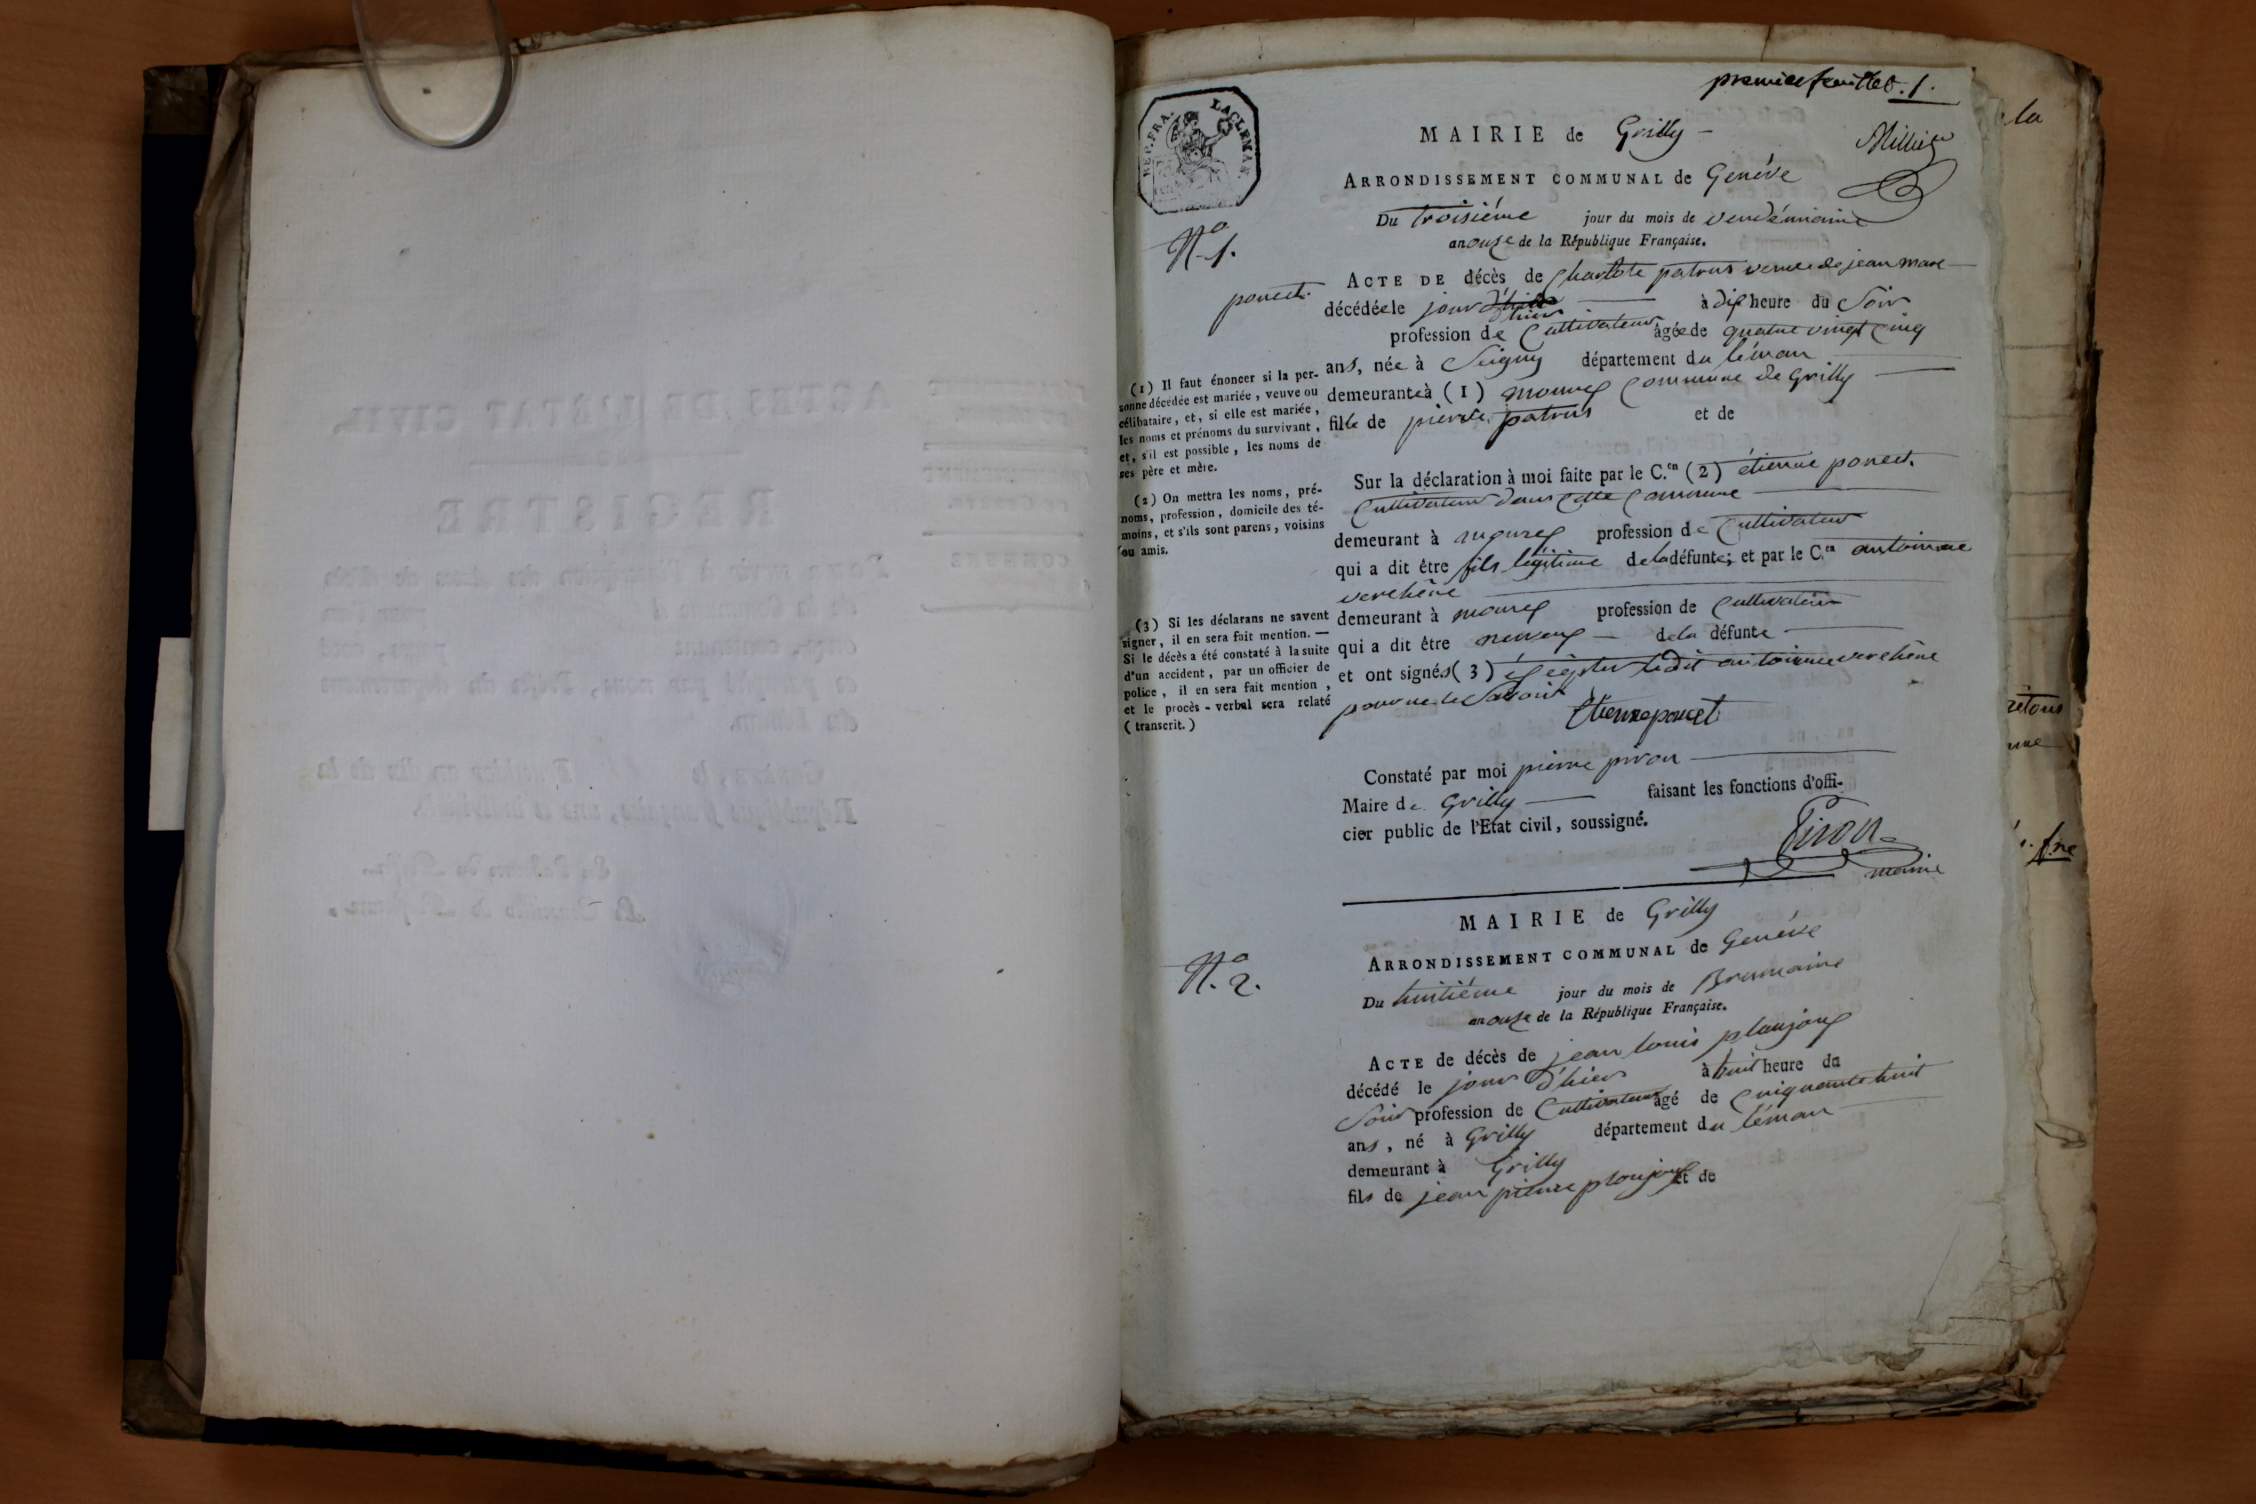 premier feuillet. 1.
REP. FRA. LAC LEMAN
MAIRIE de Grilly
ARRONDISSEMENT COMMUNAL de Genêve
Du troisiéme jour du mois de vendémiaire
an onze de la République Française.
N.o 1.
ACTE DE décès de Charlote patrus veuve de jean marc
poncet.
décédée le jour d'hier à dix heure du Soir
hier
profession de Cultivateur âgée de quatre vingt Cinq
ans, née à Seigny département du léman
demeurante à (1) mourex Commune de Grilly
fille de pierre patrus et de
(1) Il faut énoncer si la per-
sonne décédée est mariée, veuve ou
célibataire, et, si elle est mariée,
les noms et prénoms du survivant,
et, s'il est possible, les noms de
ses père et mère.
Sur la déclaration à moi faite par le C.en (2) étienne poncet.
Cultivateur dans Cette Commune
demeurant à mourex profession de Cultivateur
qui a dit être fils légitime de la défunte; et par le C.en antoinne
verchêre
(2) On mettra les noms, pré-
noms, profession, domicile des té-
moins, et s'ils sont parens, voisins
ou amis.
demeurant à mourex profession de Cultivateur
qui a dit être neveux de la défunte
et ont signés (3) ledit antoinne verchêre
pour ne le Savoir
etienne poncet
(3) Si les déclarans ne savent
signer, il en sera fait mention. —
Si le décès a été constaté à la suite
d'un accident, par un officier de
police, il en sera fait mention,
et le procès-verbal sera relaté
(transcrit.)
Constaté par moi pierre piron
Maire de Grilly faisant les fonctions d'offi-
cier public de l'Etat civil, soussigné.
Piron
maire
MAIRIE de Grilly
ARRONDISSEMENT COMMUNAL de Genéve
N.o 2.
Du huitiéme jour du mois de Brumaire
an onze de la République Française.
ACTE de décès de jean louis planjoux
décédé le jour d'hier à huit heure du
Soir profession de Cultivateur âgé de Cinquante huit
ans, né à Grilly département du léman
demeurant à Grilly
fils de jean pierre et de